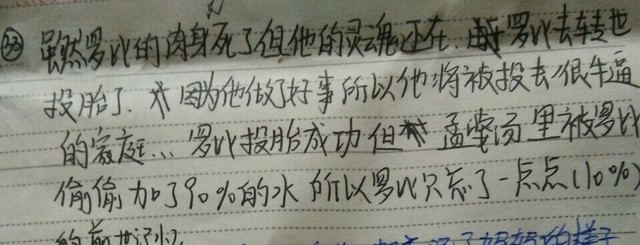 虽然罗比的肉身死了但他的灵魂还在. 罗比去转世
投胎了. 因为他做了好事所以他将被投去很牛逼
的家庭... 罗比投胎成功但 孟婆汤里被罗比
偷偷加了90%的水 所以罗比只忘了一点点(10%)
的前世记忆
妈妈的样子